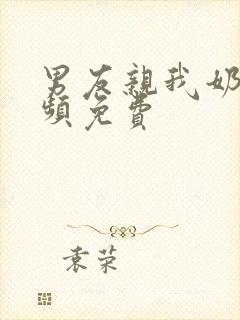 男友親我奶
頻免費
袁荣